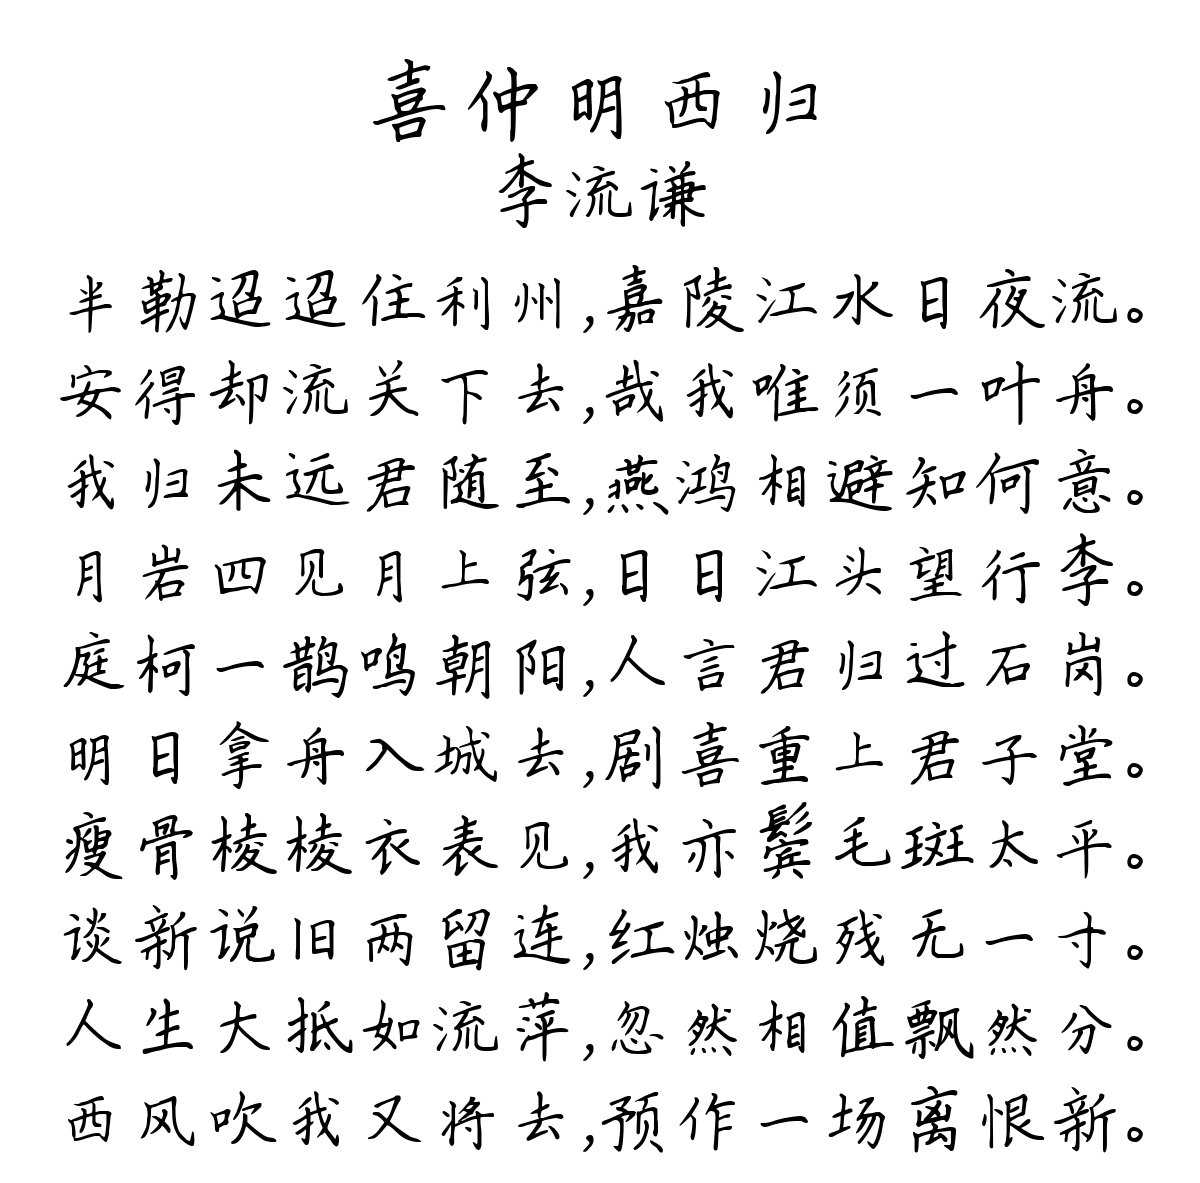 喜仲明西归
李流谦
半勒迢迢住利州,嘉陵江水日夜流。
安得却流关下去,哉我唯须一叶舟。
我归未远君随至,燕鸿相避知何意。
月岩四见月上弦,日日江头望行李。
庭柯一鹊鸣朝阳,人言君归过石岗。
明日拿舟入城去,剧喜重上君子堂。
瘦骨棱棱衣表见,我亦鬓毛斑太平。
谈新说旧两留连,红烛烧残无一寸。
人生大抵如流萍,忽然相值飘然分。
西风吹我又将去,预作一场离恨新。